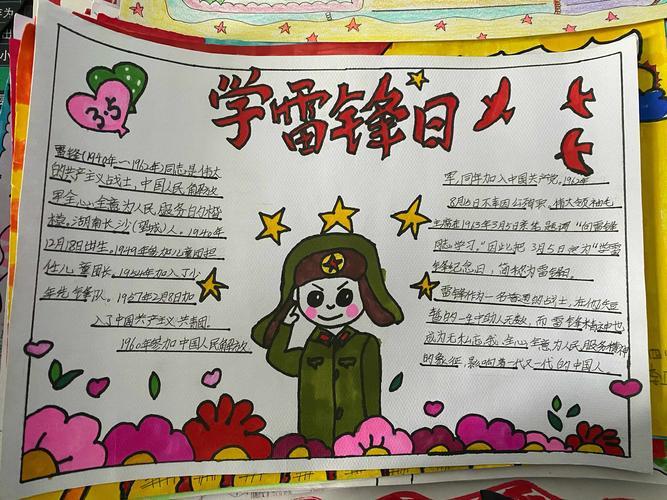 3.5
学雷锋日
雷锋(1940年—1962年)同志是伟大
的共产主义战士，中国人民解放
军全心全意为人民服务的楷
模。湖南长沙(望城)人。1940年
12月18日出生。1949年参加儿童团担
任儿童团长。1954年加入了少
年先锋队。1957年2月8日加
入了中国共产主义共青团。
1960年参加中国人民解放
军，同年加入中国共产党。1962年
8月15日不幸因公殉职，伟大领袖毛
主席在1963年3月5日亲笔题词“向雷锋
同志学习。”因此把3月5日定为“学雷
锋纪念日，简称为雷锋日。
雷锋作为一名普通的战士，在他短
暂的一生中助人无数，而雷锋精神也
成为无私忘我、全心全意为人民服务精神
的象征，影响着一代又一代的中国人